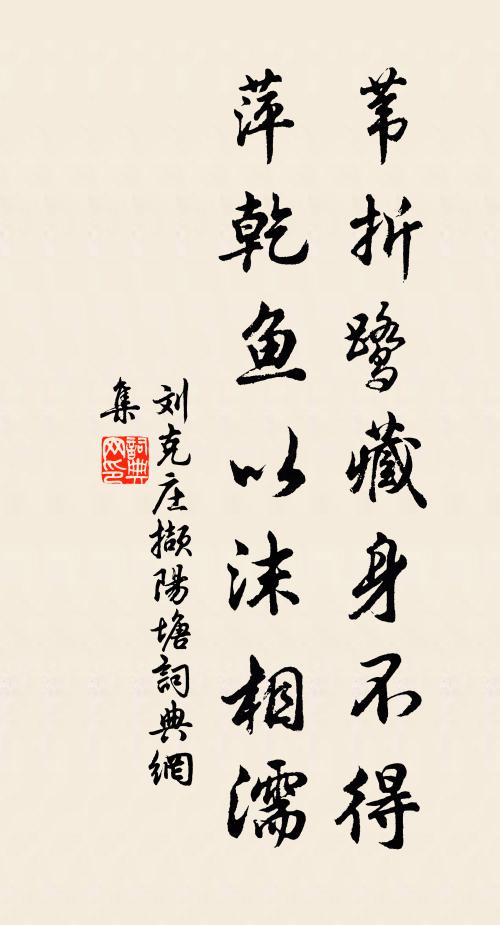 苇折鹭藏身不得
萍乾鱼以沫相濡
刘克庄撷陽塘詞典網
集
詞典网印